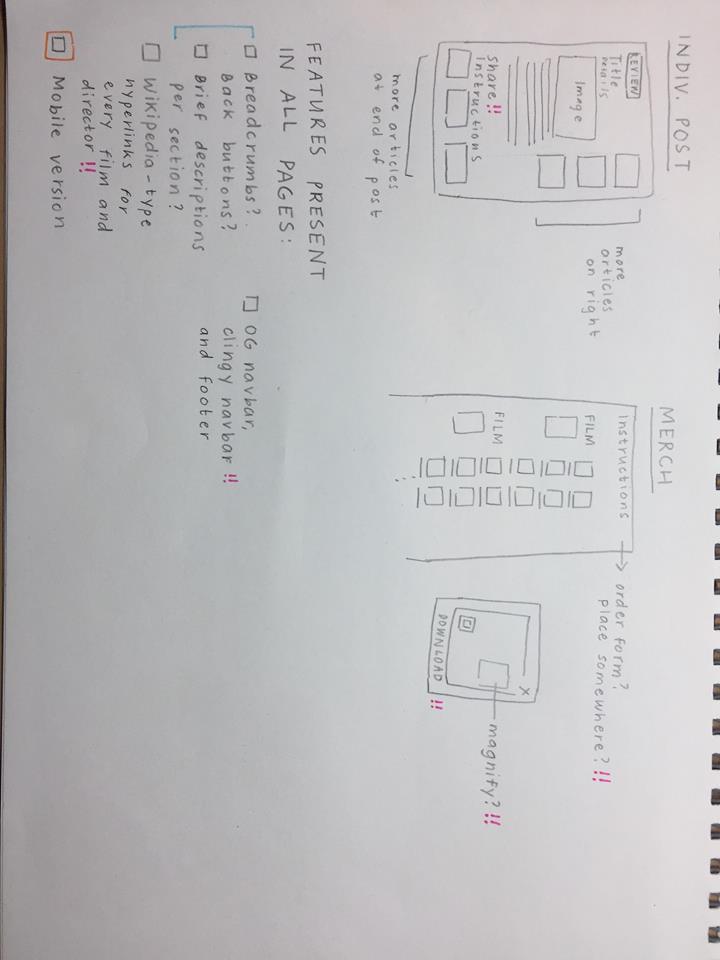 INDIV. POST
REVIEW
Title
Details
Image
share!!
Instructions
more
articles
on right
more articles
at end of post
MERCH
Instructions
order form?
place somewhere? !!
FILM
FILM
X
magnify? !!
DOWNLOAD !!
FEATURES PRESENT
IN ALL PAGES:
Breadcrumbs?
Back buttons?
Brief descriptions
per section?
Wikipedia-type
hyperlinks for
every film and
director !!
Mobile version
OG navbar,
clingy navbar !!
and footer